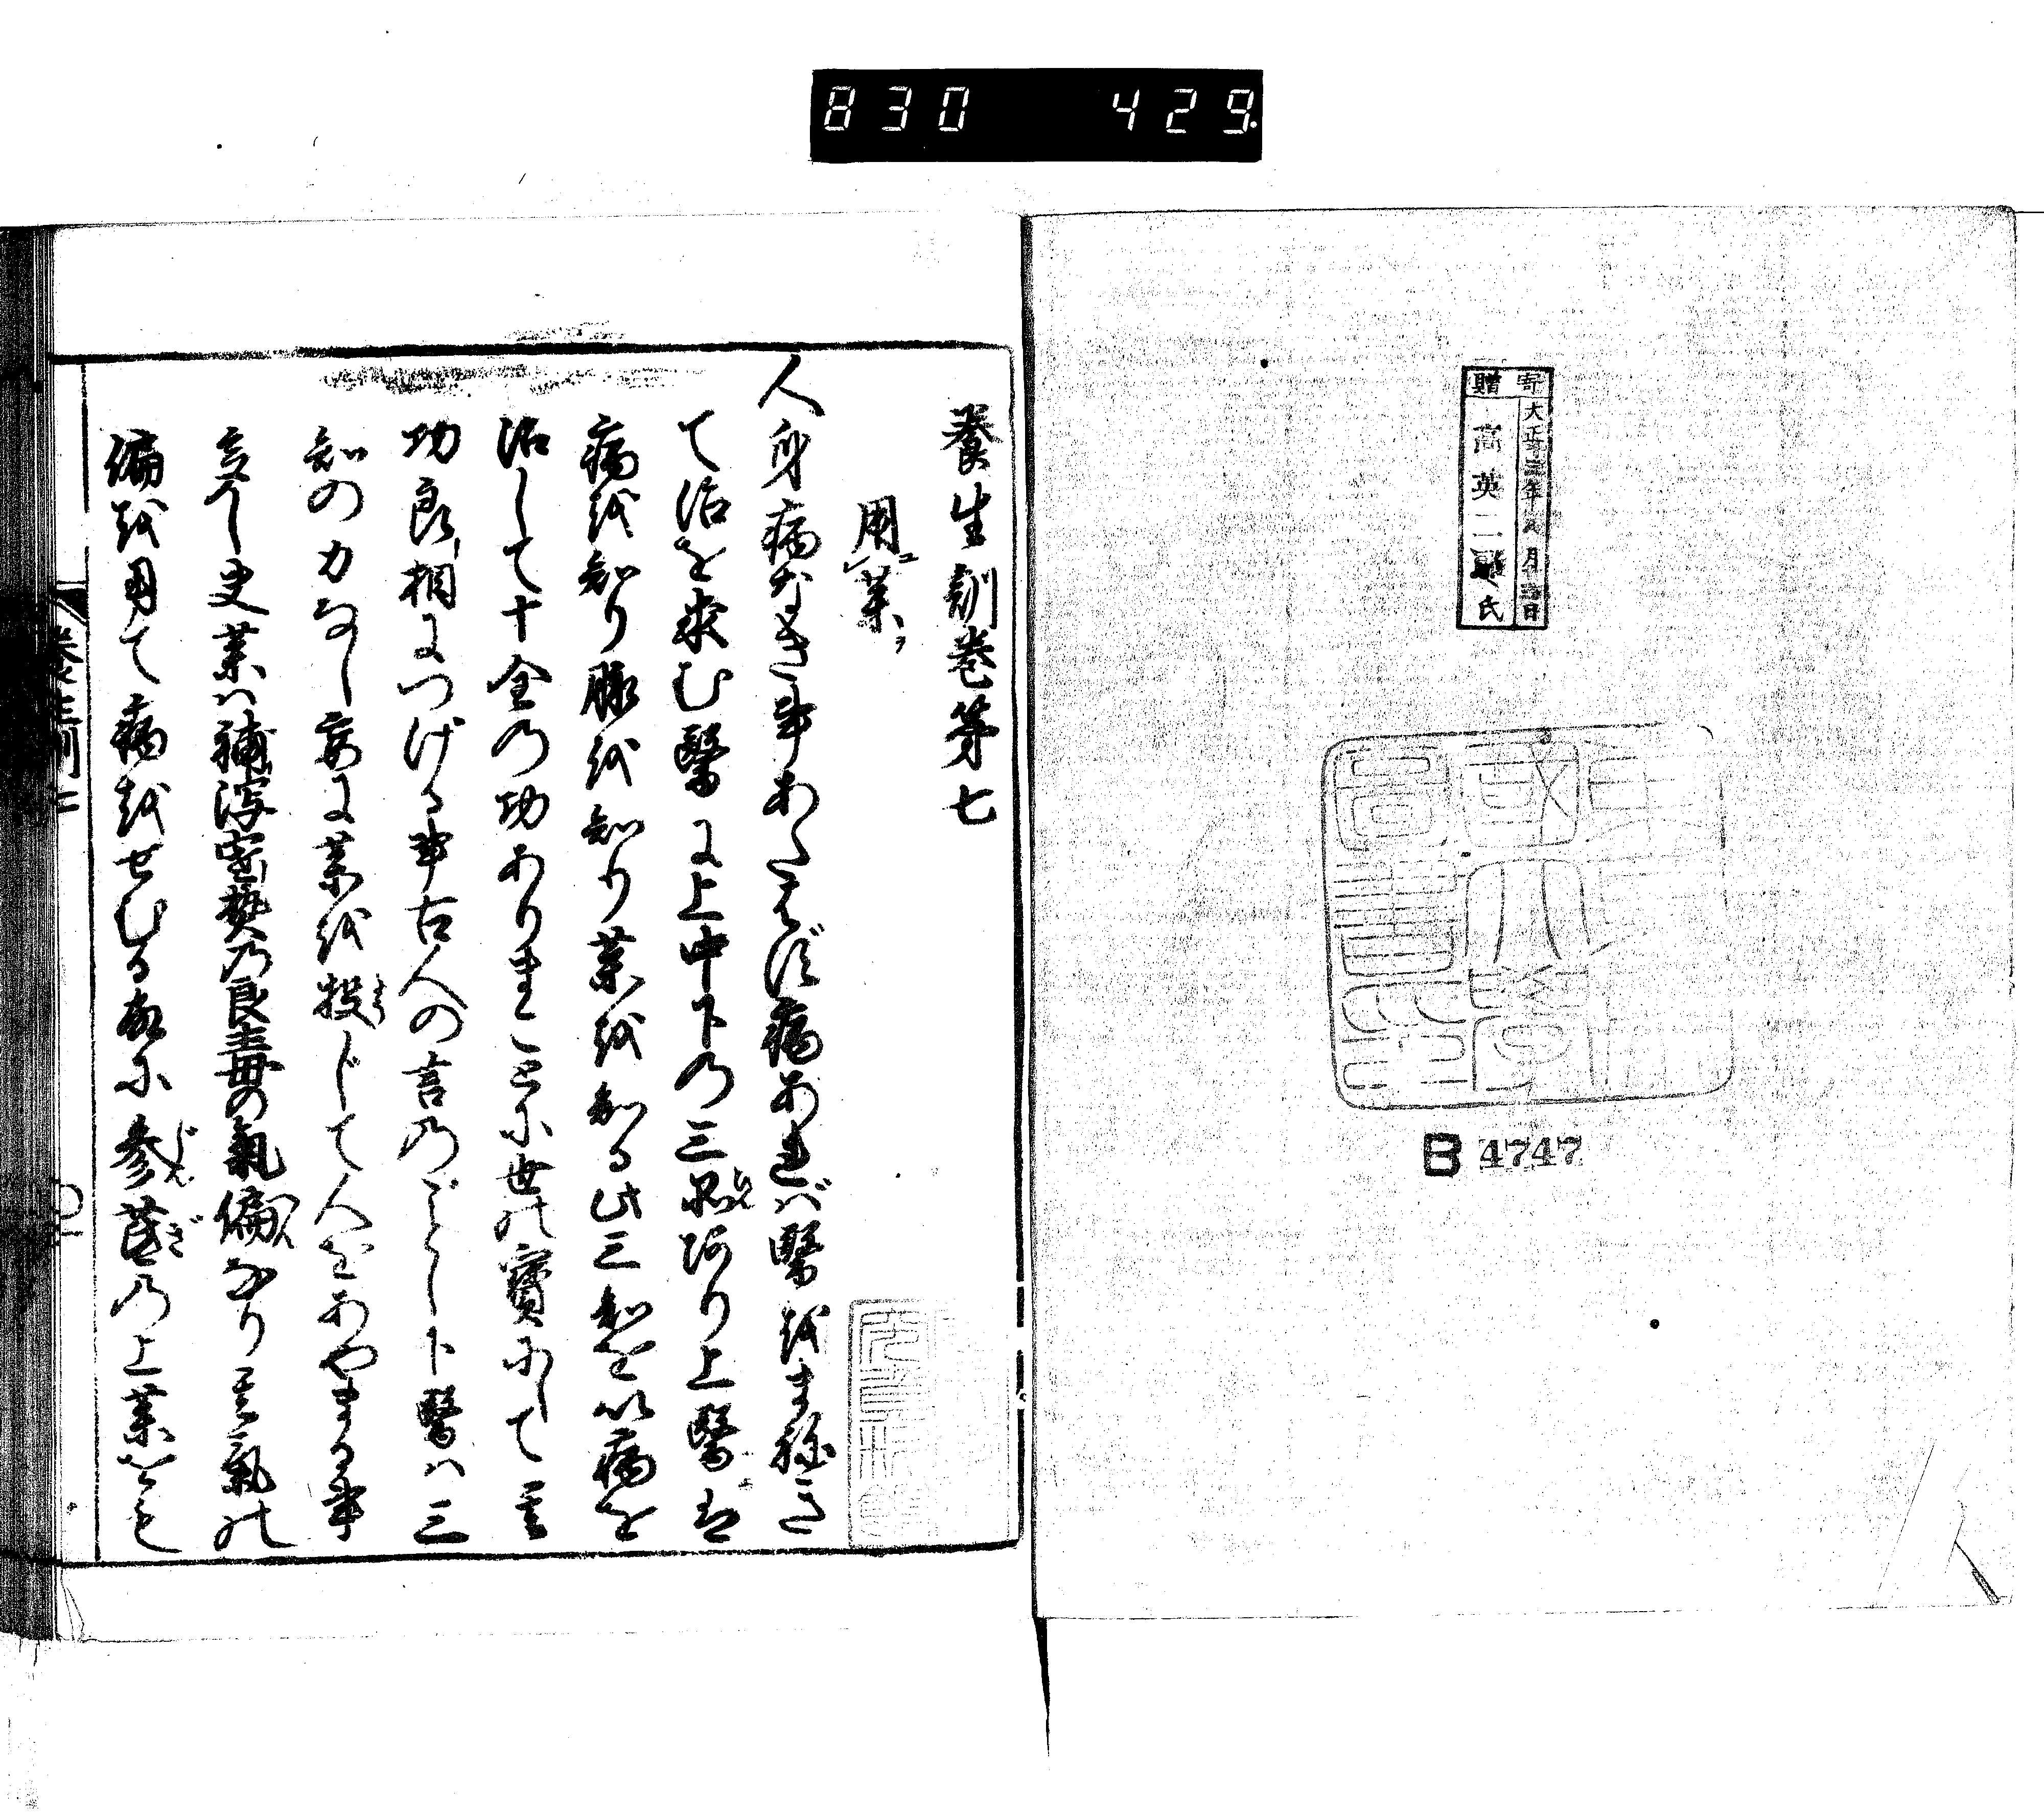 830 429
寄贈
大正三年 月 日
高英二 氏
B 4747
養生訓巻第七
用レ薬ヲ
人身病なき事あたはず病あればゞ醫をまねき
て治を求む醫に上中下の三品あり上醫は
病を知り脉を知り薬を知る此三知を以病を
治して十全の功ありまことに世の寳にして其
功良相につげる事古人の言のごとし下醫は三
知の力なし妄に薬を投じて人をあやまる事
多し夫薬は補瀉寒熱の良毒の氣偏なり其氣の
偏を用て病をせむる故に参芪の上薬をも